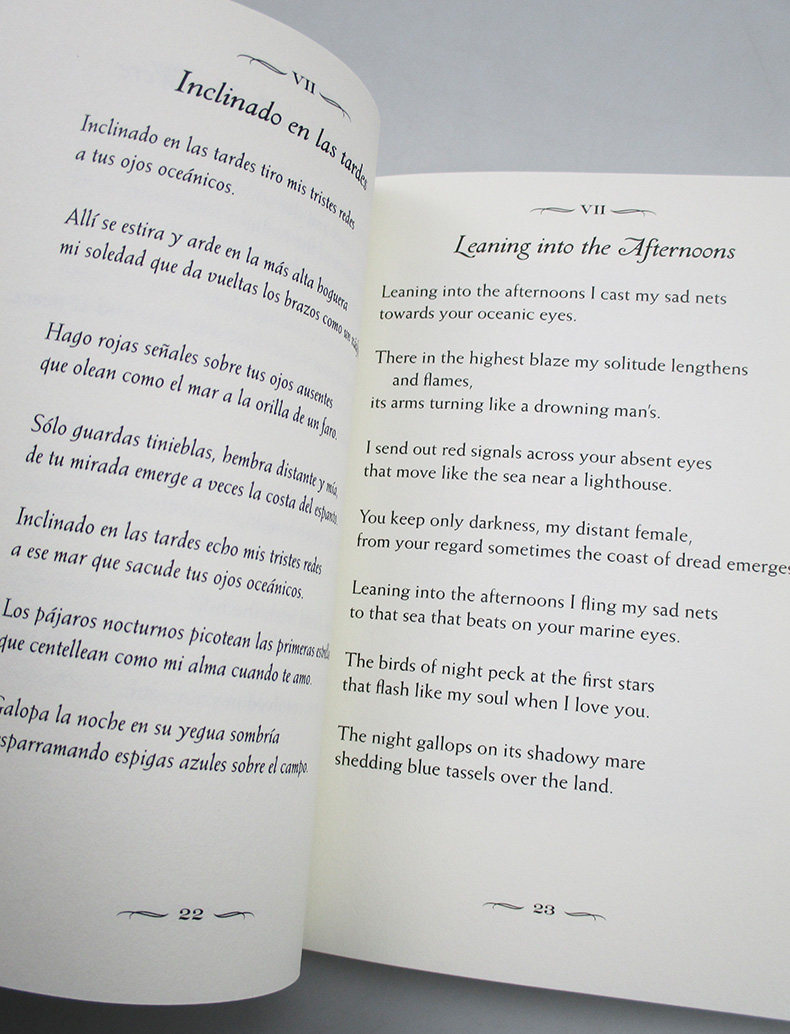 VII
Inclinado en las tardes
Inclinado en las tardes tiro mis tristes redes
a tus ojos oceánicos.
Allí se estira y arde en la más alta hoguera
mi soledad que da vueltas los brazos como un
Hago rojas señales sobre tus ojos ausentes
que olean como el mar a la orilla de un faro.
Sólo guardas tinieblas, hembra distante y mía,
de tu mirada emerge a veces la costa del espanto.
Inclinado en las tardes echo mis tristes redes
a ese mar que sacude tus ojos oceánicos.
Los pájaros nocturnos picotean las primeras
que centellean como mi alma cuando te amo.
Galopa la noche en su yegua sombría
sparramando espigas azules sobre el campo.
22
VII
Leaning into the Afternoons
Leaning into the afternoons I cast my sad nets
towards your oceanic eyes.
There in the highest blaze my solitude lengthens
and flames,
its arms turning like a drowning man's.
I send out red signals across your absent eyes
that move like the sea near a lighthouse.
You keep only darkness, my distant female,
from your regard sometimes the coast of dread emerges
Leaning into the afternoons I fling my sad nets
to that sea that beats on your marine eyes.
The birds of night peck at the first stars
that flash like my soul when I love you.
The night gallops on its shadowy mare
shedding blue tassels over the land.
23